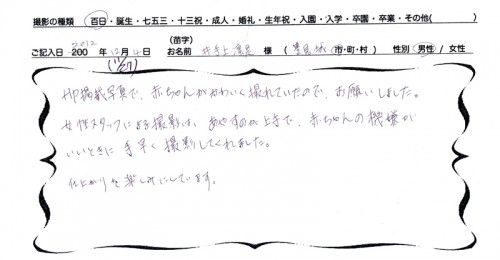 撮影の種類 (百日・誕生・七五三・十三祝・成人・婚礼・生年祝・入園・入学・卒園・卒業・その他( )
(苗字)
ご記入日 200 2012 年 12月 4日 お名前 様 (豊見城 市・町・村) 性別 男性 / 女性
(11/27)
HP掲載写真で、赤ちゃんがかわいく撮れていたので、お願いしました。
女性スタッフによる撮影は、あやすのが上手で、赤ちゃんの機嫌が
いいときに手早く撮影してくれました。
仕上がりを楽しみにしています。